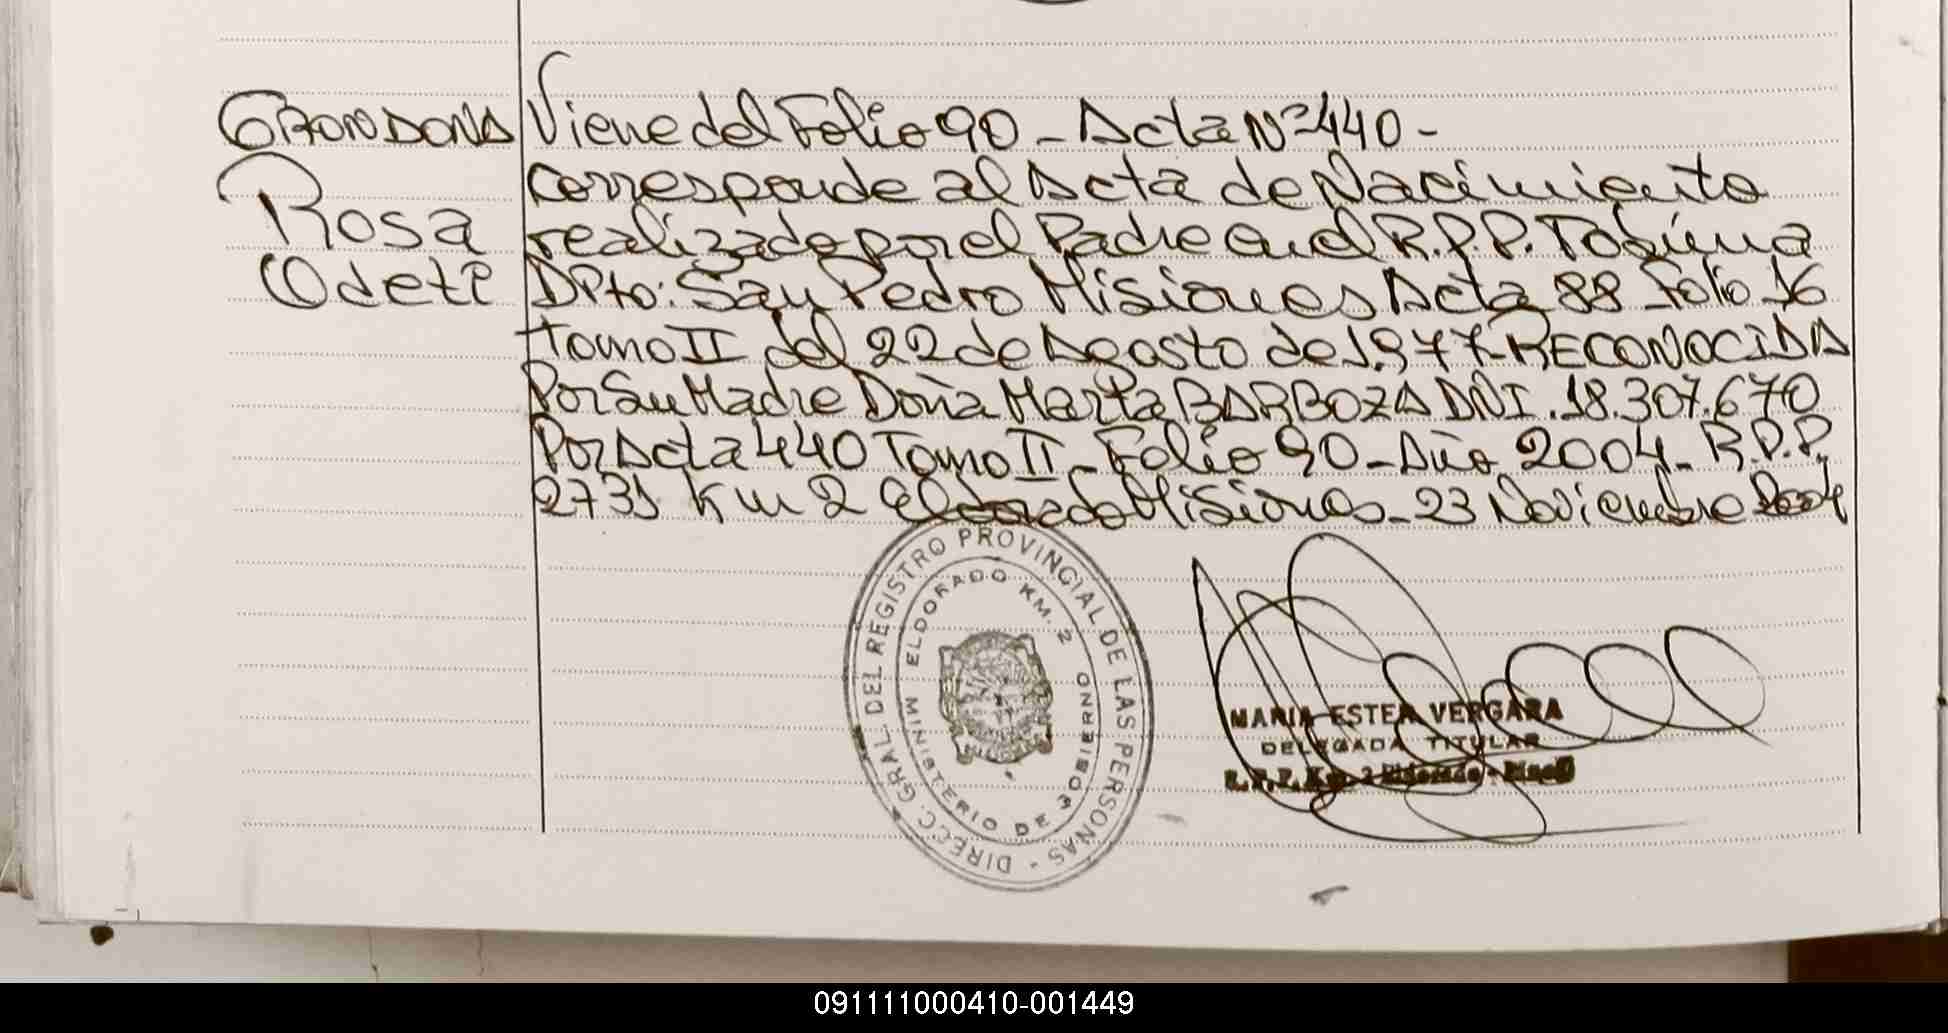 GRONDONA
Rosa
Odete
Viene del Folio 90 - Acta Nº 440 -
Corresponde al Acta de Nacimiento
realizada por el Padre en el R.P.P. Tobuna
DPto: San Pedro Misiones Acta 88 Folio 16
Tomo II del 22 de Agosto de 1.977- RECONOCIDA
Por Su Madre Doña Marta BARBOZA DNI. 18.307.670
Por Acta 440 Tomo II - Folio 90 - Año 2004 - R.P.P.
2731 Km 2 Eldorado Misiones - 23 Noviembre 2004
DIRECC. GRAL DEL REGISTRO PROVINCIAL DE LAS PERSONAS -
MINISTERIO DE GOBIERNO
ELDORADO KM. 2
MARIA ESTER VERGARA
DELEGADA TITULAR
R.P.P. Km. 2 Eldorado - Mnes
091111000410-001449